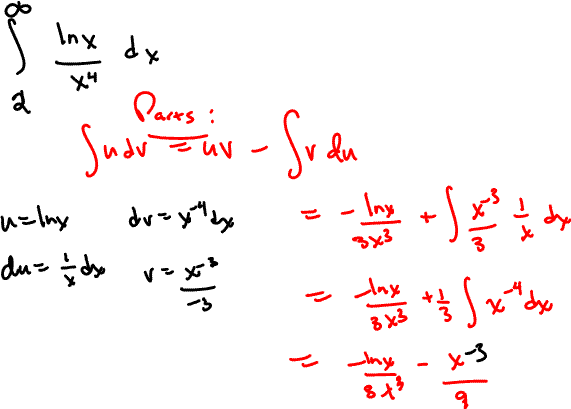 ∫₂^∞ lnx/x⁴ dx
Parts:
∫u dv = uv - ∫v du
u = lnx dv = x⁻⁴dx
du = 1/x dx v = x⁻³/-3
= -lnx/3x³ + ∫ x⁻³/3 1/x dx
= -lnx/3x³ + 1/3 ∫ x⁻⁴dx
= -lnx/3x³ - x⁻³/9